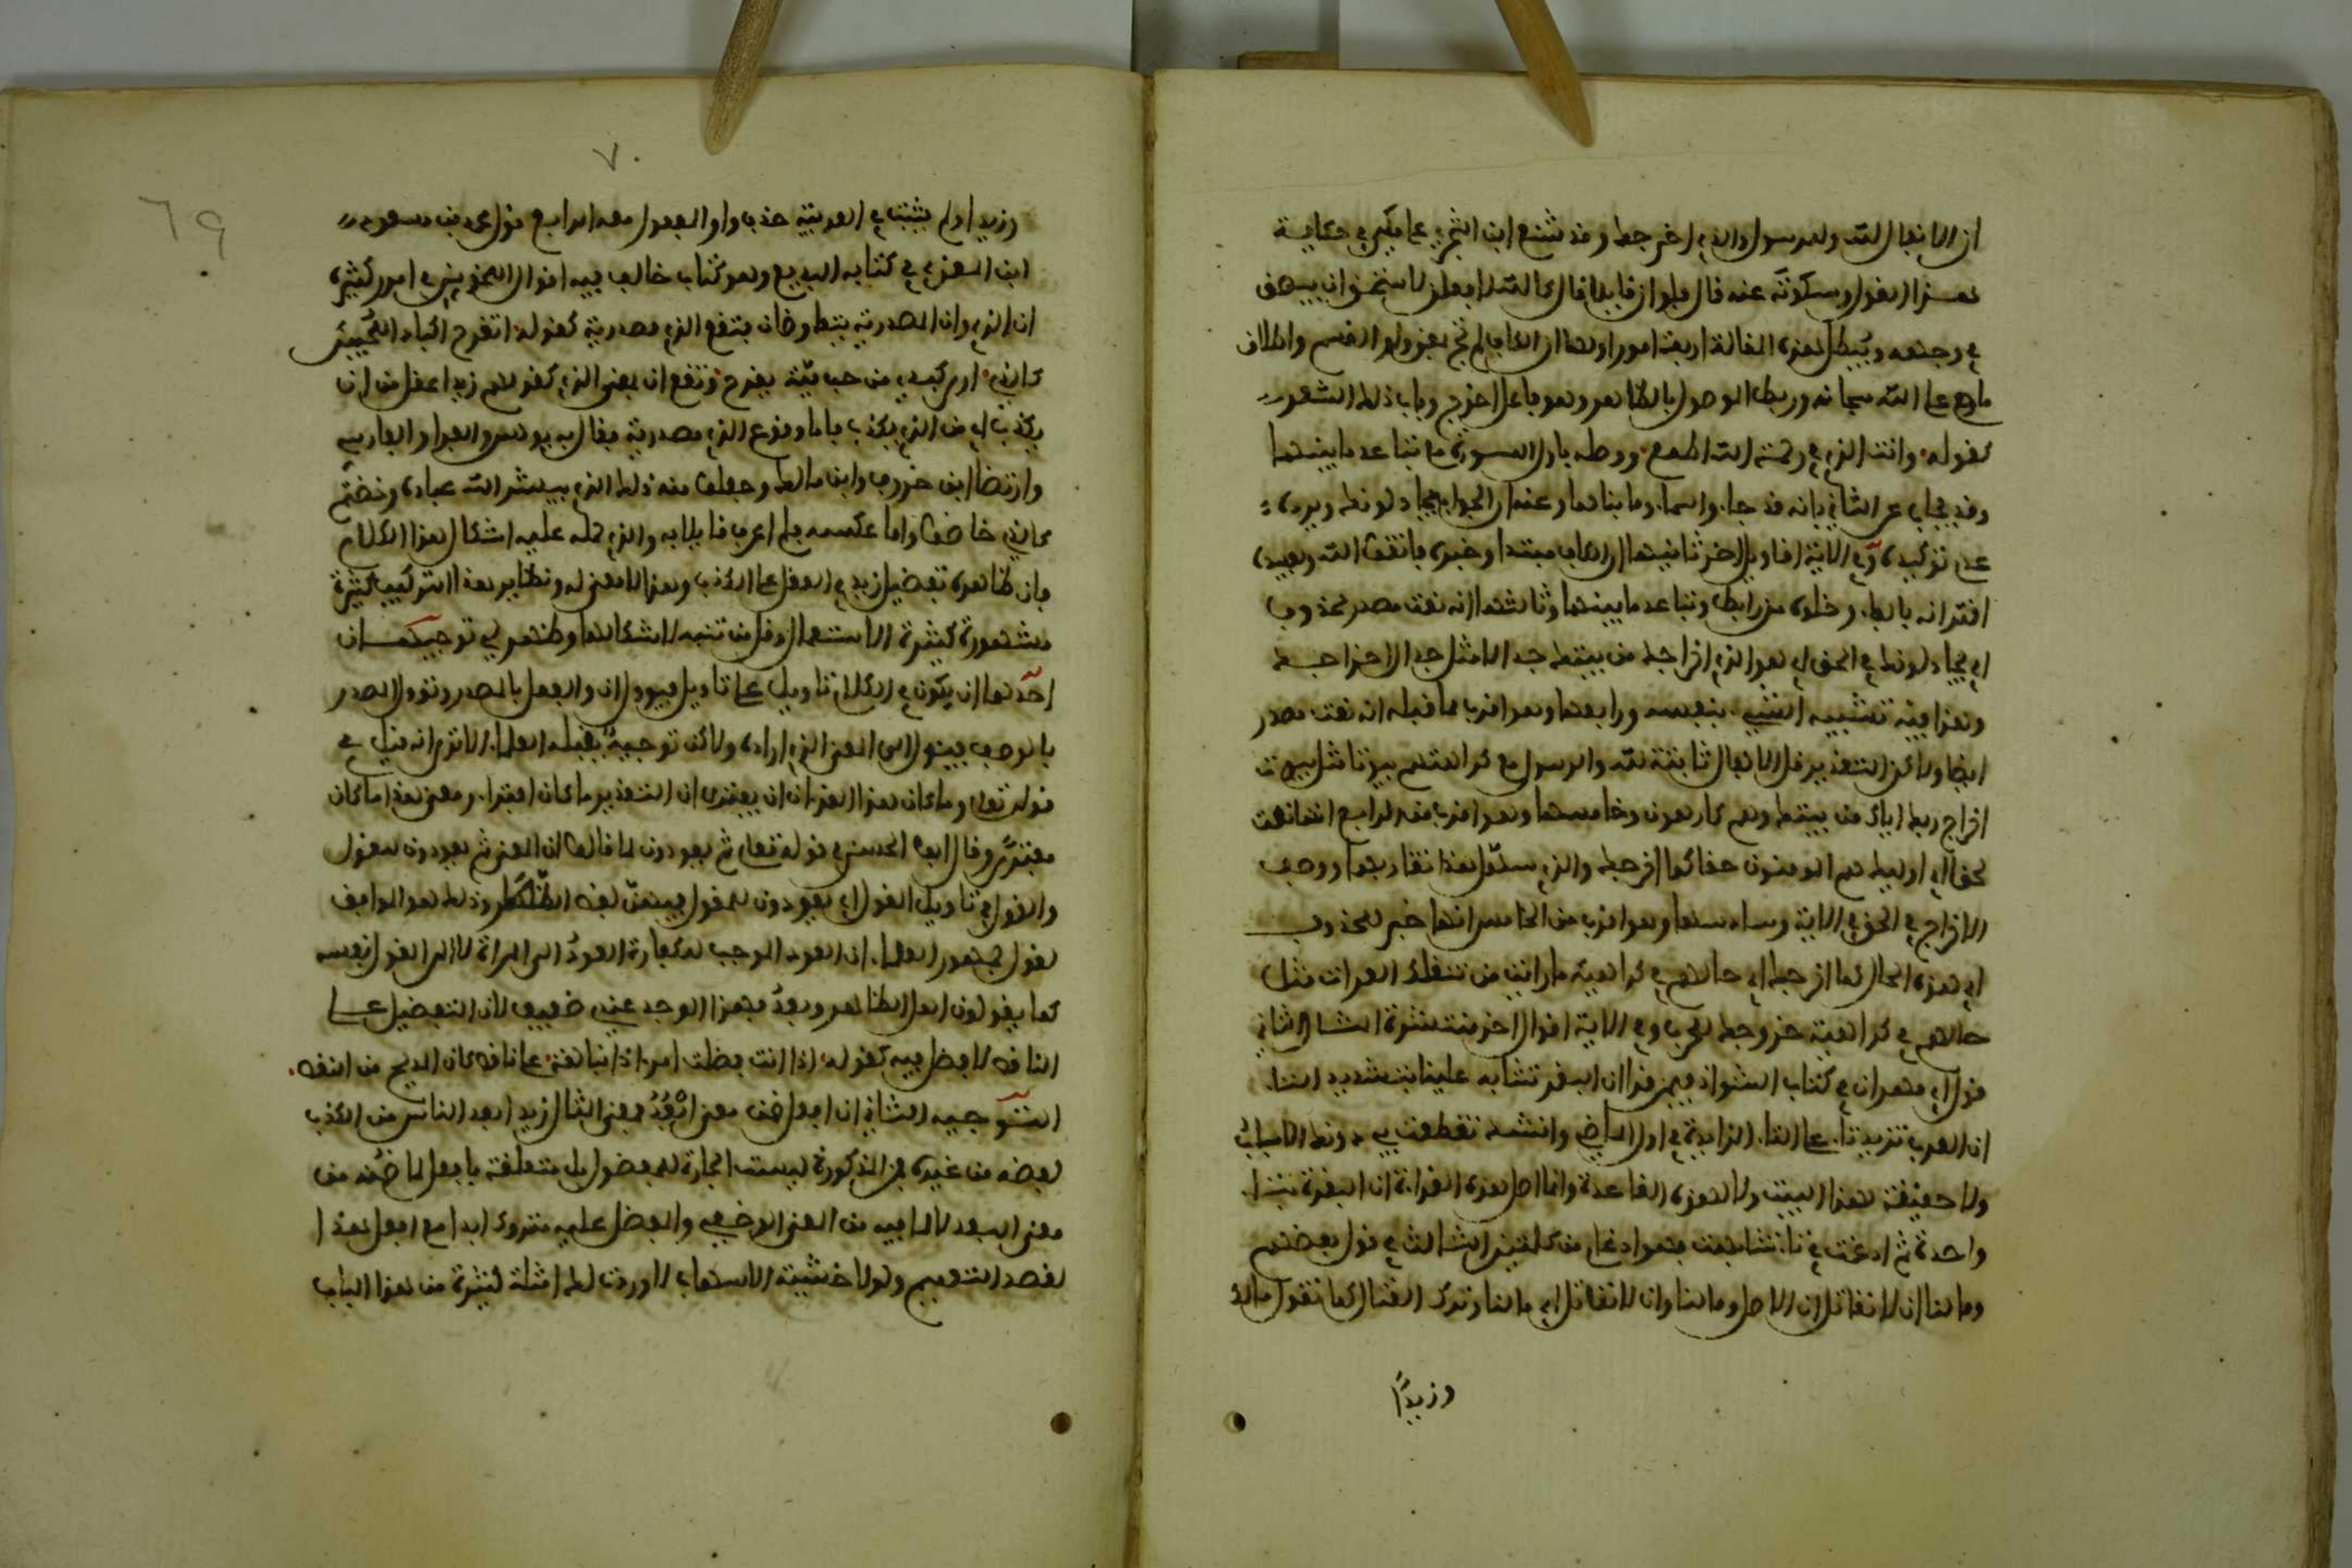 ان الانفال لله والرسول والذي اخرجك وقد شنع ابن الشجري على مكي في حكاية
هذا القول وسكوته عنه قال فلو ان قايلا قال كالله لافعلن لاستحق ان يبصق
في وجهه ويبطل هذه المقالة اربعة امور اولها ان الكاف لم تجئ بمعنى واو القسم واطلاق
ما على الله سبحانه وربط الموصول بالظاهر وهو فاعل اخرج وباب ذلك الشعر
كقوله وانت الذي في رحمة الله اطمع ووصله باول السورة مع تباعد ما بينهما
وقد يجاب عن الثاني بانه قد جاء والسماء وما بناها وعنه ان الجواب يجادلونك ويرده
عدم توكيده وفي الاية اقاويل اخر ثانيها ان الكاف مبتدا وخبره فاتقوا الله ويفسده
اقترانه بالفاء وخلوه من رابط وتباعد ما بينهما وثالثها انه نعت مصدر محذوف
اي يجادلونك في الحق الذي هو اخراجك من بيتك جدالا مثل جدال اخراجك
وهذا فيه تشبيه الشيء بنفسه ورابعها وهو اقرب مما قبله انه نعت مصدر
ايضا ولاكن التقدير قل الانفال ثابتة لله والرسول مع كراهتهم ثبوتا مثل ثبوت
اخراج ربك اياك من بيتك وهم كارهون وخامسها وهو اقرب من الرابع انها نعت
لحقا اي اوليك هم المومنون حقا كما اخرجك والذي سهل هذا تقاربهما ووصف
الاخراج في الحق في الاية وسادسها وهو اقرب من الخامس انها خبر لمحذوف
اي هذه الحال كحال اخراجك اي حالهم في كراهية ما رايت من تنفلك الغزاة مثل
حالهم في كراهية خروجك للحرب وفي الاية اقوال اخر منتشرة المثال الثاني
قول ابن مهران في كتاب الشواذ فيمن قرا ان البقر تشابه علينا بتشديد التاء
ان العرب تزيد تاء على التاء الزايدة في اول الماضي وانشد تتقطعت بي دونك الاسباب
ولا حقيقة لهذا البيت ولا لهذه القاعدة وانما اصل هذه القراءة ان البقرة بتاء
واحدة ثم ادغمت في تاء تشابهت فهو ادغام من كلمتين الثالث في قول بعضهم
وما لنا ان لا نقاتل ان الاصل وما لنا وان لا نقاتل اي ما لنا وترك القتال كما تقول مالك
وزيدًا
٧٠
٦٩
وزيدا ولم يثبت في العربية حذف واو المفعول معه الرابع قول محمد بن مسعود
ابن الغزي في كتابه البديع وهو كتاب خالف فيه اقوال النحويين في امور كثيرة
ان الذي وان المصدرية يتقارضان فتقع الذي مصدرية كقوله اتقرح اكباد المحبين
كالذي ارى كبدي من حب مية يقرح وتقع ان بمعنى الذي كقولهم زيد اعقل من ان
يكذب اي من الذي يكذب فاما وقوع الذي مصدرية فقال به يونس والفراء والفارسي
وارتضاه ابن خروف وابن مالك وجعلوا منه ذلك الذي يبشر الله عباده وخضتم
كالذي خاضوا واما عكسه فلم اعرف قايلا به والذي حمله عليه اشكال هذا الكلام
فان ظاهره تفضيل زيد في العقل على الكذب وهذا لا معنى له ونظاير هذا التركيب كثيرة
مشهورة كثيرة الاستعمال وقل من تنبه لاشكالها وظهر لي توجيهان
احدهما ان يكون في الكلام تاويل على تاويل فيوول ان والفعل بالمصدر ويوول المصدر
بالوصف فيئول الى المعنى الذي اراده ولاكن توجيه يقبله العلماء الا ترى انه قيل في
قوله تعالى وما كان هذا القران ان يفترى ان التقدير ما كان افتراء ومعنى هذا ما كان
مفترى وقال ابو الحسن في قوله تعالى ثم يعودون لما قالوا ان المعنى ثم يعودون للقول
والقول في تاويل المقول اي يعودون للمقول فيهن لفظ الظهار وذلك هو الموافق
لقول جمهور العلماء ان العود الموجب للكفارة العود الى المراة لا الى القول نفسه
كما يقول اهل الظاهر وبعد فهذا الوجه عندي ضعيف لان التفضيل على
الناقص لا فضل فيه كقوله اذا انت فضلت امرا ذا نباهة على ناقص كان المديح من النقص
التوجيه الثاني ان افعل ضمن معنى ابعد فمعنى المثال زيد ابعد الناس من الكذب
لفضله من غيره فمن المذكورة ليست الجارة للمفضول بل متعلقة بافعل لما ضمنه من
معنى البعد لا لما فيه من المعنى الوضعي والمفضل عليه متروك ابدا مع افعل هذا
لقصد التعميم ولولا خشية الاسهاب لاوردت لك امثلة كثيرة من هذا الباب